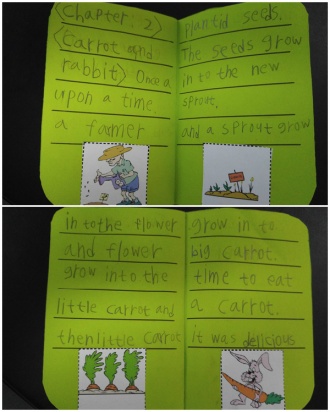 (Chapter: 2)
(Carrot and
rabbit) Once a
upon a time.
a famier
plantid seeds.
The seeds grow
in to the new
sprout.
and a sprout grow
in to the flower
and flower
grow into the
little carrot and
then little carrot
grow in to
big carrot.
time to eat
a carrot.
it was delicious